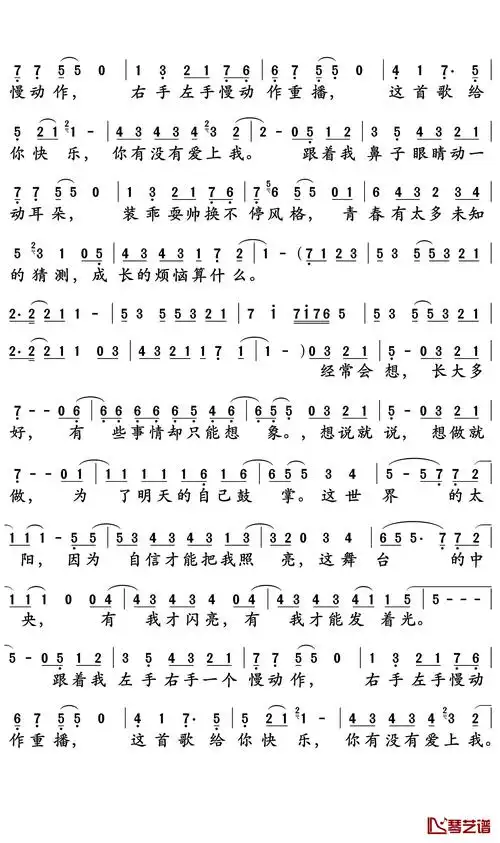 7 7 5 5 0 | 1 3 2 1 7 6 | 6 7 5 5 0 | 4 1 7· 5 |
慢动作， 右手左手慢动 作重播， 这首歌给
5 2 1 2 1 - | 4 3 4 3 4 3 2 3 2 | 2 - 0 5 1 2 | 3 5 4 3 2 1 |
你快乐， 你有没有爱上我。 跟着我 鼻子眼睛动一
7 7 5 5 0 | 1 3 2 1 7 6 | 7 5 6 5 5 0 1 | 6 4 4 3 2 3 4 |
动耳朵， 装乖耍帅换不 停风格， 青春有太多未知
5 2 3 1 0 5 | 5 4 3 4 3 1 7 2 | 1 - (7 1 2 3 | 5 3 5 5 3 2 1 |
的猜测，成 长的烦恼算什么。
2· 2 2 1 1 - | 5 3 5 5 3 5 1 | 7 i 7 i 7 6 5 | 5 3 5 5 3 2 1 |
2· 2 2 1 1 0 3 | 4 3 2 1 1 7 1 | 1 - ) 0 3 2 1 | 5 - 0 3 2 1 |
经常会 想， 长大多
7 - - 0 6 | 6 6 6 6 6 5 4 6 | 6 5 5 0 3 2 1 | 5 - 0 3 2 1 |
好， 有 些事情却只能想 象。，想说就 说，想做就
7 - 0 1 | 1 1 1 1 1 6 1 6 | 6 5 5 5 3 4 | 5 - 5 7 7 2 |
做， 为 了明天的自己鼓 掌。这世 界 的太
1 1 1 - 5 5 | 5 3 4 3 4 3 4 | 3 0 5 5 3 4 | 6 5 5· 7 7 2 |
阳，因为 自信才能把我照 亮，这舞 台 的中
1 1 1 0 0 4 | 4 3 4 3 4 0 4 | 4 3 4 3 4 3 5 | 5 - - - |
央， 有 我才闪亮，有 我才能发 着光。
5 - 0 5 1 2 | 3 5 4 3 2 1 | 7 7 5 5 0 | 1 3 2 1 7 6 |
跟着我 左手右手一个 慢动作， 右手左手慢动
6 7 5 5 0 | 4 1 7· 5 | 5 2 1 2 1 - | 4 3 4 3 4 3 2 3 2 |
作重播， 这首歌 给你快 乐，你有没有爱上我。
琴艺谱